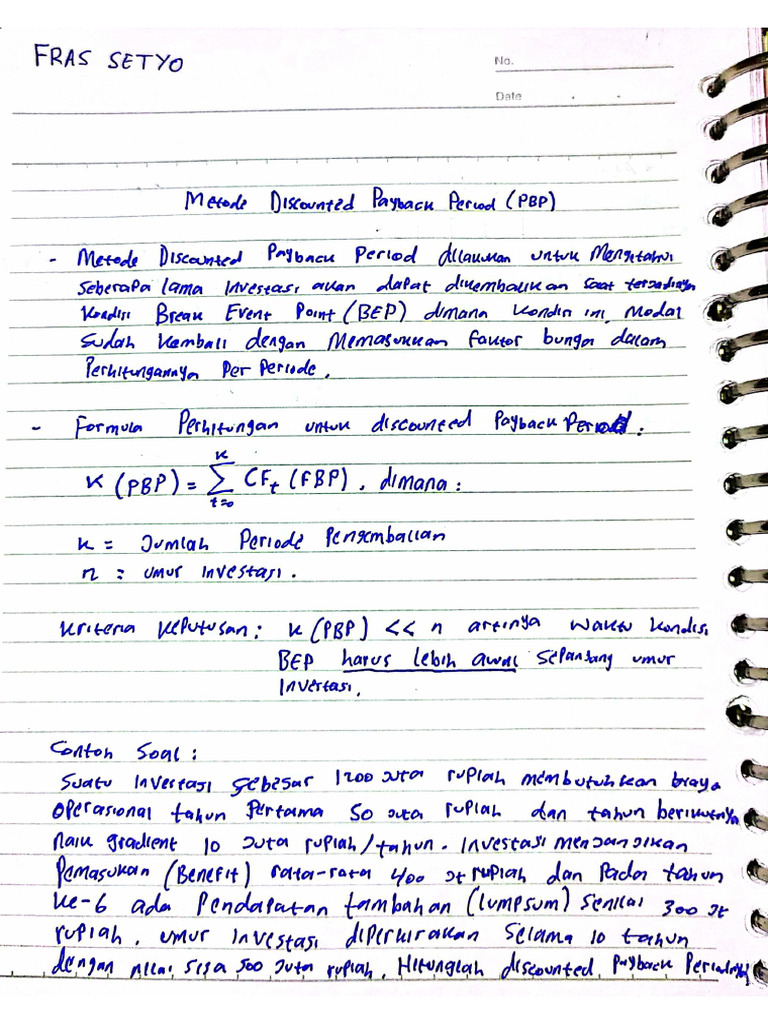 FRAS SETYO
No.
Date
Metode Discounted Payback Period (PBP)
- Metode Discounted Payback Period dilakukan untuk Mengetahui
seberapa lama Investasi akan dapat dikembalikan saat terjadinya
kondisi Break Event Point (BEP) dimana kondisi ini, Modal
sudah kembali dengan Memasukkan faktor bunga dalam
Perhitungannya Per Periode.
- Formula Perhitungan untuk discounted Payback Period :
k (PBP) = k∑t=0 CFt (FBP). dimana :
k = Jumlah Periode Pengembalian
n = umur investasi.
Kriteria Keputusan : k (PBP) << n artinya waktu kondisi
BEP harus lebih awal sepanjang umur
Investasi.
Contoh Soal :
Suatu Investasi sebesar 1200 Juta rupiah membutuhkan biaya
Operasional tahun Pertama 50 Juta rupiah dan tahun berikutnya
naik gradient 10 Juta rupiah/tahun. Investasi menjanjikan
Pemasukan (Benefit) rata-rata 400 Jt rupiah dan Pada tahun
ke-6 ada Pendapatan tambahan (lumpsum) senilai 300 Jt
rupiah. umur Investasi diperkirakan selama 10 tahun
dengan nilai sisa 500 Juta rupiah. Hitunglah discounted Payback Periodnya